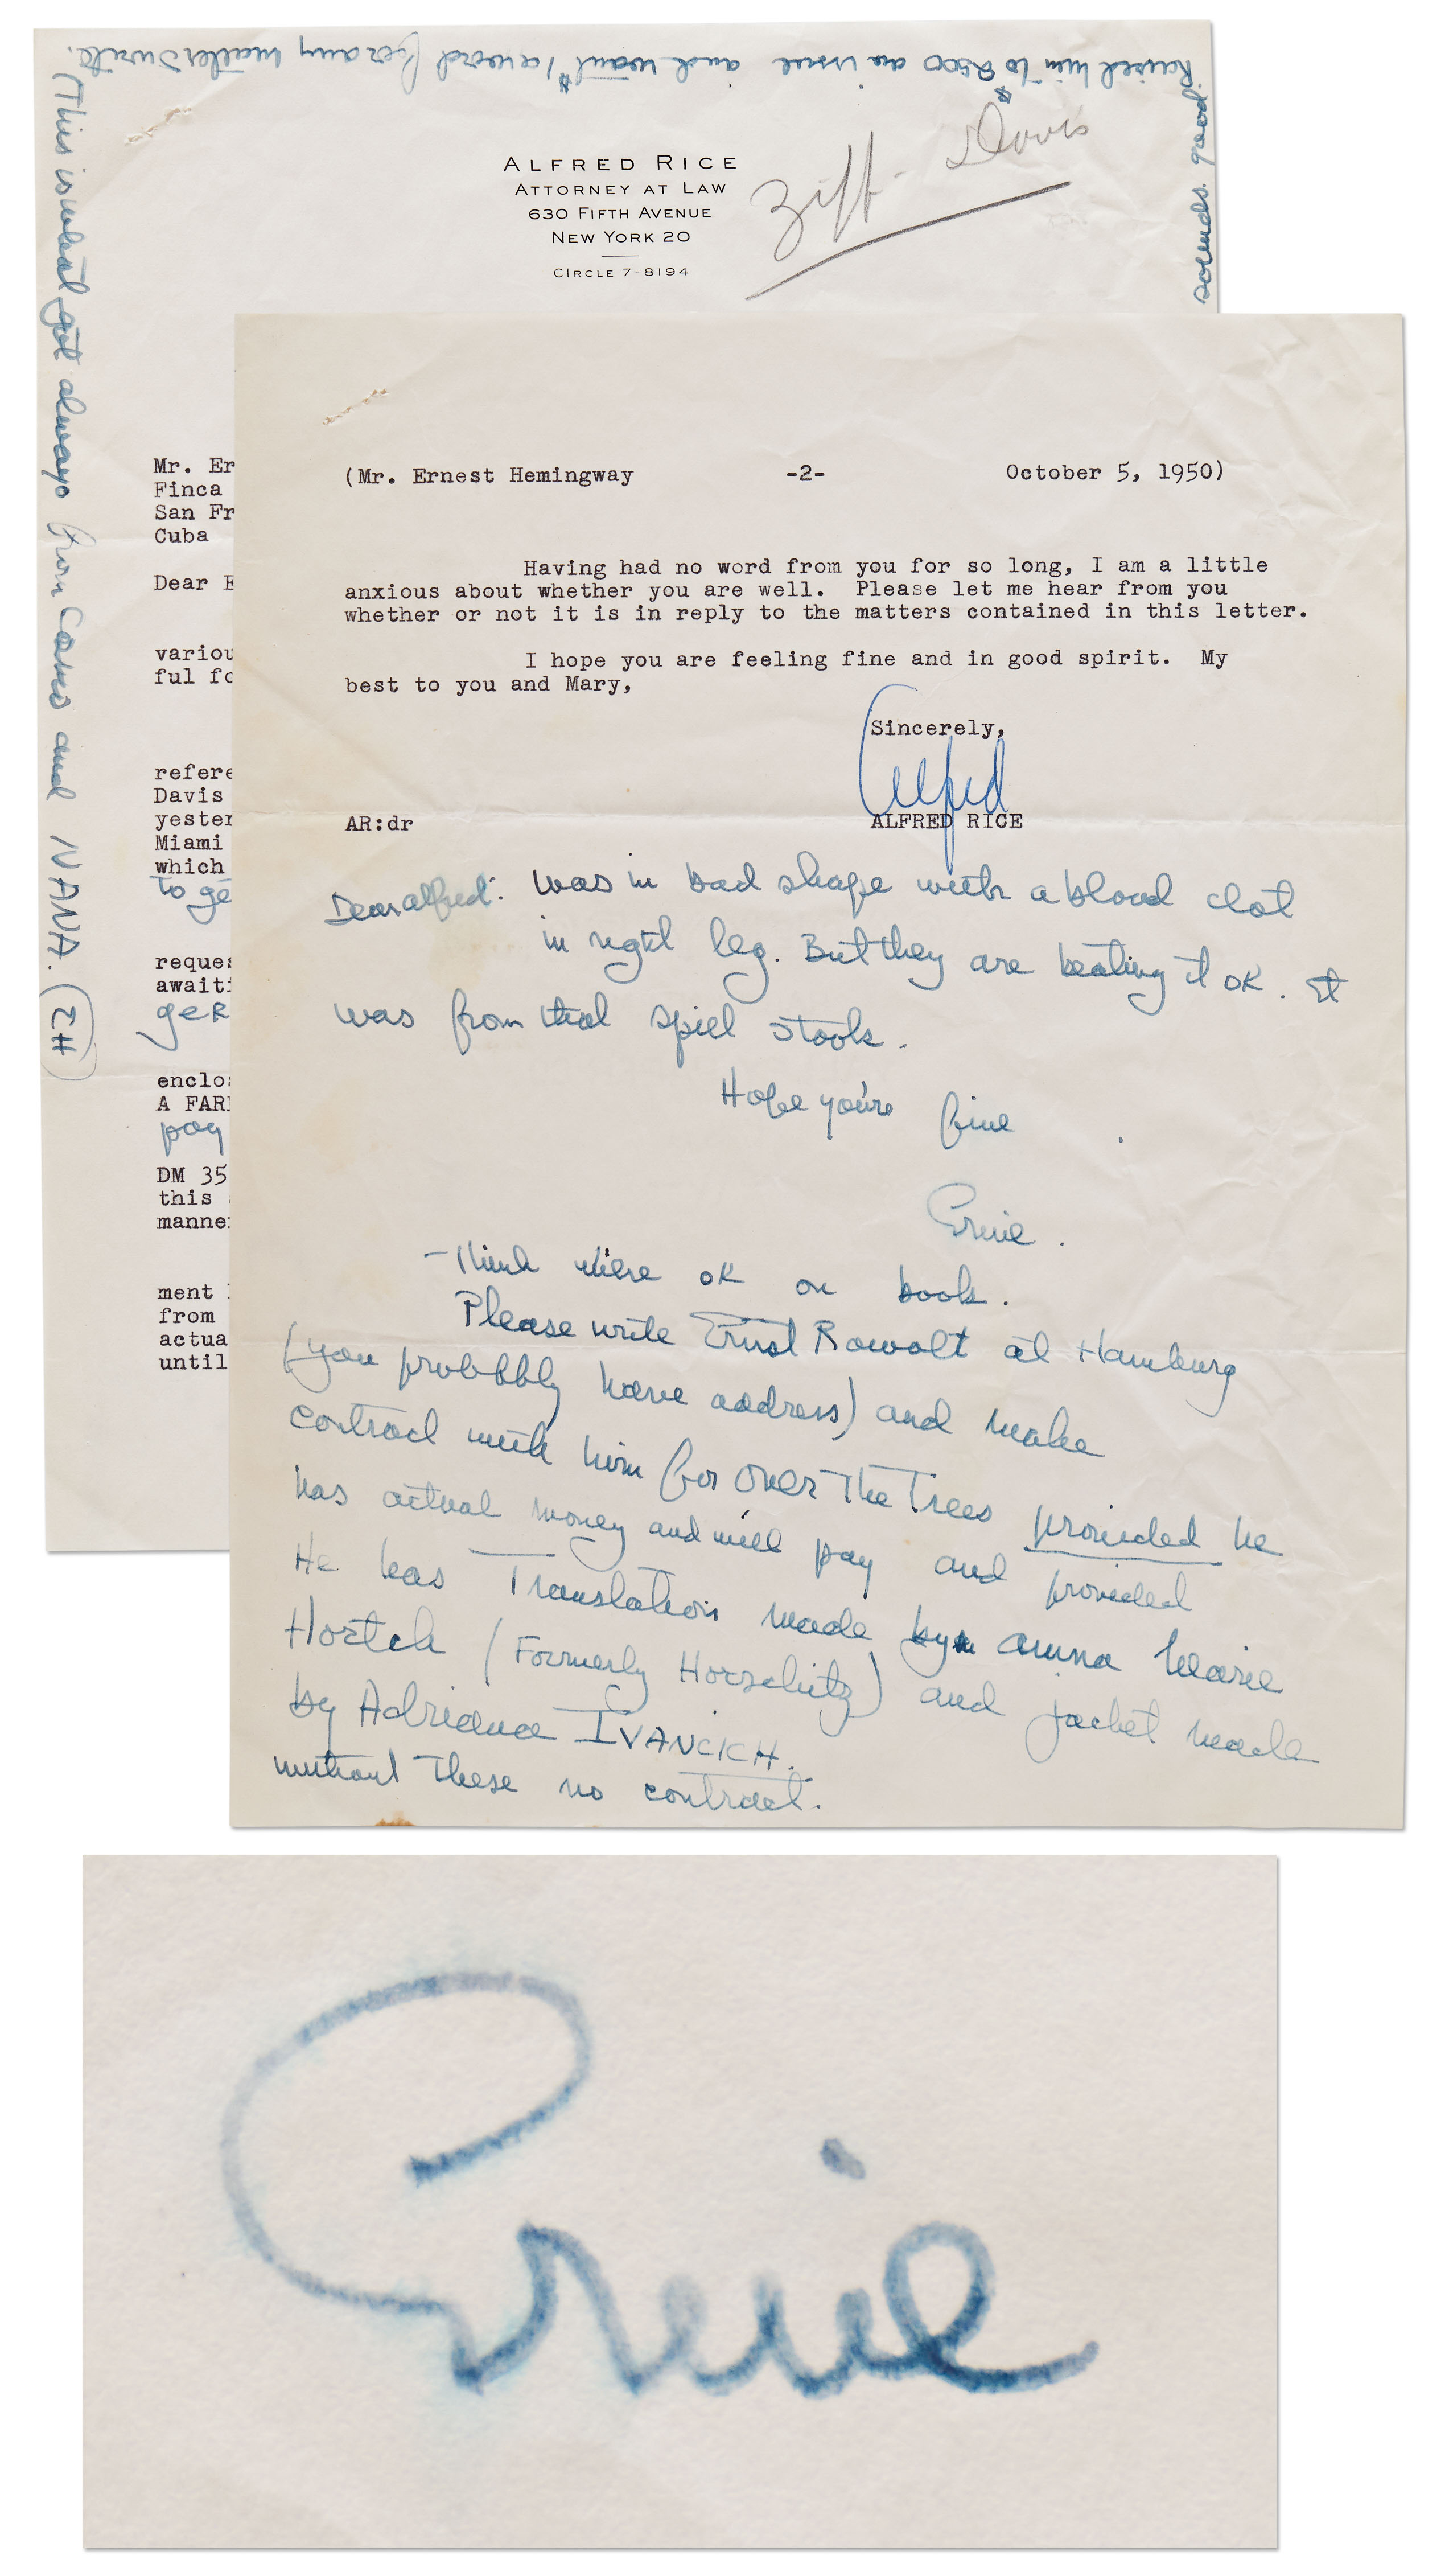 Raised him to $2500 an issue and want $1 a word for any matter I write.
sounds good.
(This is what get always from Cosmo and NANA. (EH)
Ziff-Davis
ALFRED RICE
ATTORNEY AT LAW
630 FIFTH AVENUE
NEW YORK 20
CIRCLE 7-8194
Mr. Er
Finca
San Fr
Cuba
Dear E
variou
ful fo
refere
Davis
yester
Miami
which
to ge
reques
awaiti
enclos
A FAR
pay
DM 35
this
manne
ment
from
actua
until
(Mr. Ernest Hemingway -2- October 5, 1950)
Having had no word from you for so long, I am a little
anxious about whether you are well. Please let me hear from you
whether or not it is in reply to the matters contained in this letter.
I hope you are feeling fine and in good spirit. My
best to you and Mary,
Sincerely,
Alfred
ALFRED RICE
AR:dr
Dear Alfred: was in bad shape with a blood clot
in right leg. But they are beating it OK. It
was from that spill I took.
Hope you're fine
Ernie.
Think we're OK on book.
Please write Ernst Rowolt at Hamburg
(you probbbly have address) and make
contract with him for Over The Trees provided he
has actual money and will pay and provided
He has Translation made by Anna Marie
Hortch (Formerly Horschitz) and jacket made
by Adriana IVANCICH.
without these no contract.
Ernie